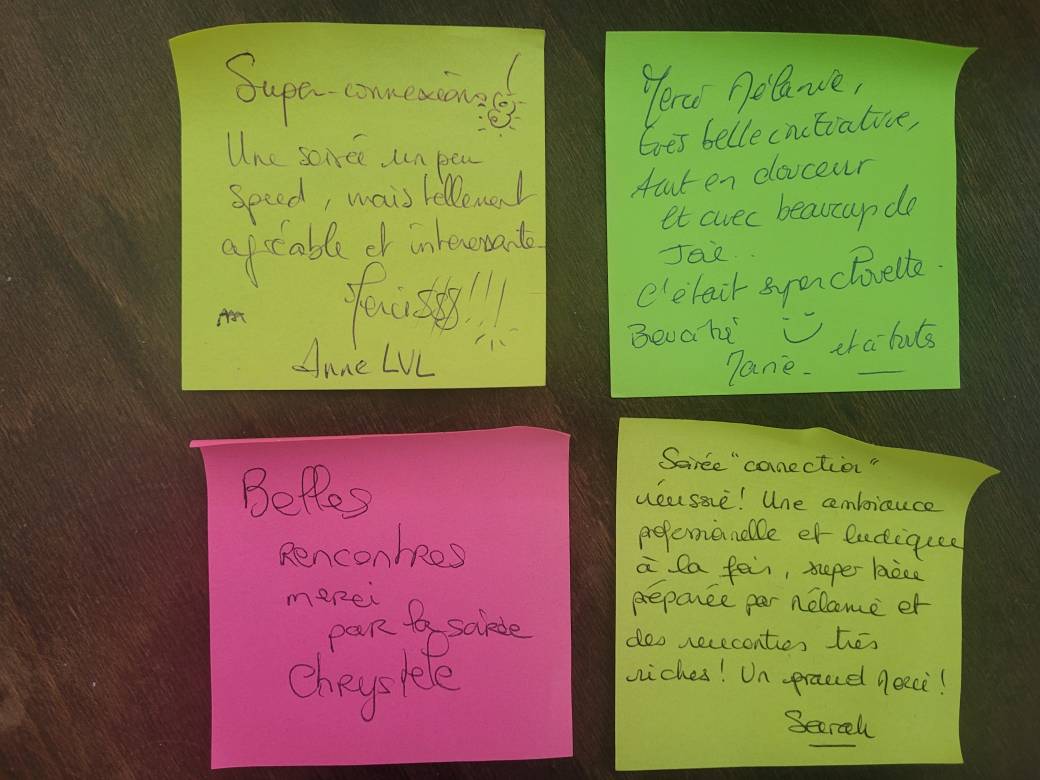 Super-connexions!
Une soirée un peu
speed, mais tellement
agréable et interessante
Merci $$$!!!
Anne LVL
Merci Mélanie,
très belle initiative,
tout en douceur
et avec beaucoup de
Joie..
C'était super chouette.
et à tuts
Marie.
Belles
Rencontres
merci
pour la soirée
Chrystele
Soirée "connection"
réussie! Une ambiance
professionnelle et ludique
à la fois, super bien
préparée par Mélanie et
des rencontres très
riches! Un grand Merci!
Sarah